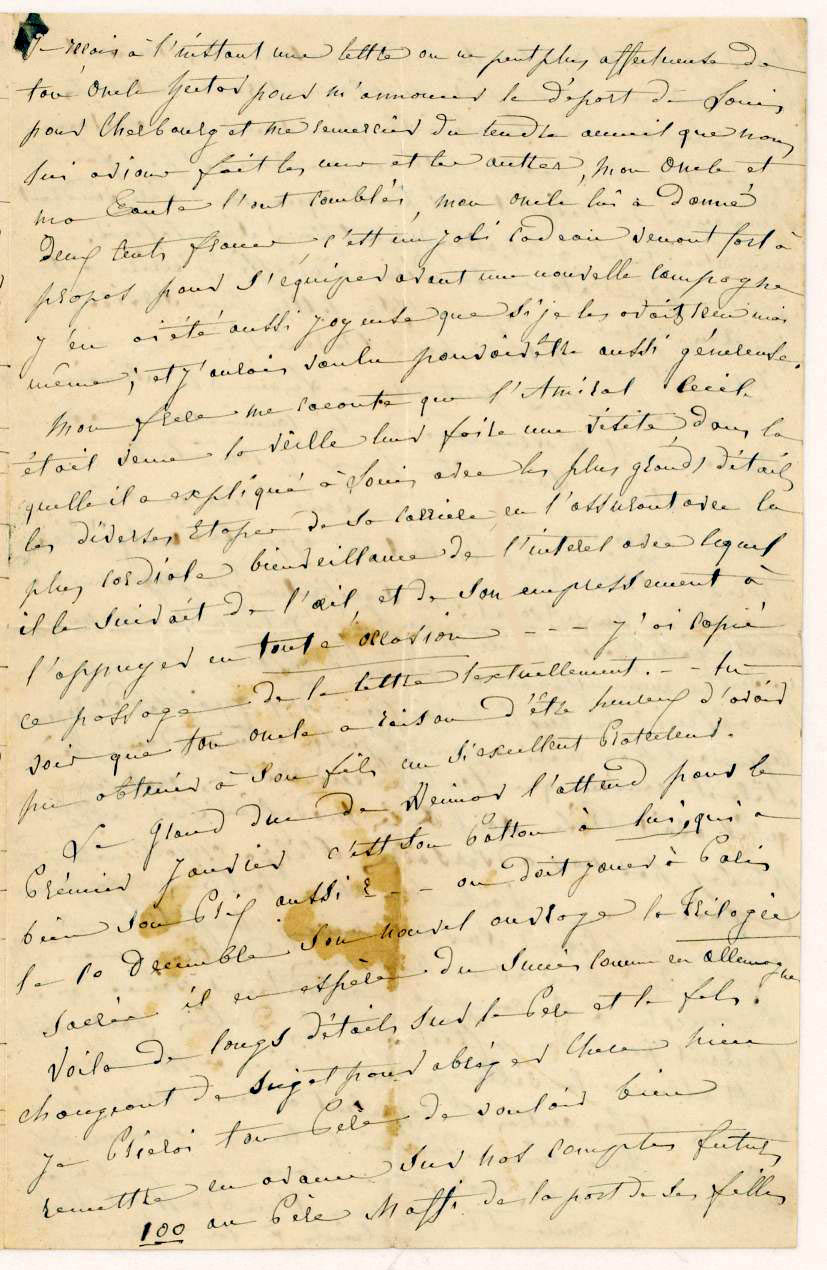 Je reçois à l'instant une lettre on ne peut plus affectueuse de
ton Oncle Hector pour m'annoncer le départ de Louis
pour Cherbourg et me remercier du tendre accueil que nous
lui avions fait les uns et les autres, mon Oncle et
ma Tante l'ont comblés, mon oncle lui a donné
deux cents francs c'est un joli cadeau venant fort à
propos pour s'équiper avant une nouvelle campagne
j'en ai été aussi joyeuse que si je les avait reçu moi
même; et j'aurois voulu pouvoir être aussi généreuse.
Mon frere me raconte que l'Amiral Cecile
étoit venu la veille leur faire une visite dans la
quelle il a expliqué à Louis avec les plus grands détails
les diverses Etapes de sa carriere en l'assurant avec la
plus cordiale bienveillance de l'interet avec lequel
il le suivait de l'œil, et de son empressement à
l'appuyer en toute occasion - - - j'ai copié
ce passage de la lettre textuellement. - - tu
vois que ton oncle a raison d'être heureux d'avoir
pu obtenir à son fils un si excellent Protecteur.
Le Grand duc de Weimar l'attend pour le
Prémier Janvier c'est son Patron à lui, qui a
bien son Prix aussi - - on doit jouer à Paris
le 10 Decembre son nouvel ouvrage la Trilogie
Sacrée il en espère du succès comme en Allemagne
Voila de longs détails sur le Pere et le fils.
changeant de sujet pour abréger Chere niece
je Prierai ton Père de vouloir bien
remettre en avance sur nos comptes futurs
100 au Père Massi de la part de ses filles